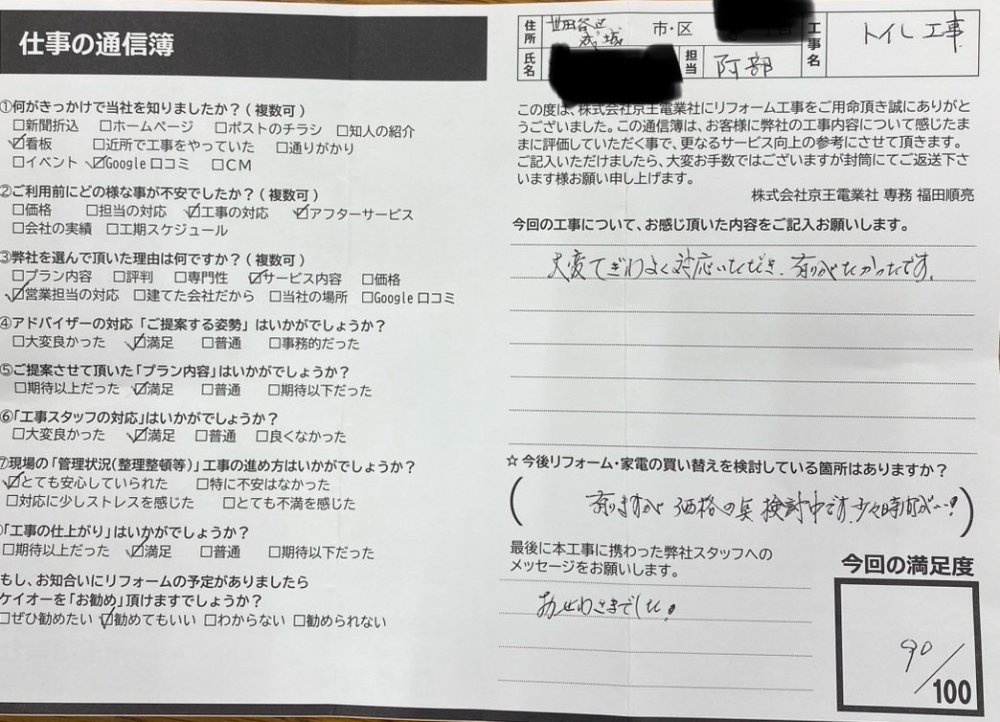 仕事の通信簿
①何がきっかけで当社を知りましたか？(複数可)
□新聞折込 □ホームページ □ポストのチラシ □知人の紹介
☑看板 □近所で工事をやっていた □通りがかり
□イベント ☑Google口コミ □CM
②ご利用前にどの様な事が不安でしたか？(複数可)
□価格 □担当の対応 ☑工事の対応 ☑アフターサービス
□会社の実績 □工期スケジュール
③弊社を選んで頂いた理由は何ですか？(複数可)
□プラン内容 □評判 □専門性 ☑サービス内容 □価格
☑営業担当の対応 □建てた会社だから □当社の場所 □Google口コミ
④アドバイザーの対応「ご提案する姿勢」はいかがでしょうか？
□大変良かった ☑満足 □普通 □事務的だった
⑤ご提案させて頂いた「プラン内容」はいかがでしょうか？
□期待以上だった ☑満足 □普通 □期待以下だった
⑥「工事スタッフの対応」はいかがでしょうか？
□大変良かった ☑満足 □普通 □良くなかった
⑦現場の「管理状況(整理整頓等)」工事の進め方はいかがでしょうか？
☑とても安心していられた □特に不安はなかった
□対応に少しストレスを感じた □とても不満を感じた
「工事の仕上がり」はいかがでしょうか？
□期待以上だった ☑満足 □普通 □期待以下だった
もし、お知合いにリフォームの予定がありましたら
ケイオーを「お勧め」頂けますでしょうか？
□ぜひ勧めたい ☑勧めてもいい □わからない □勧められない
住所 世田谷区 成城 市・区
氏名 担当 阿部
工事名 トイレ工事
この度は、株式会社京王電業社にリフォーム工事をご用命頂き誠にありがと
うございました。この通信簿は、お客様に弊社の工事内容について感じたま
まに評価していただく事で、更なるサービス向上の参考にさせて頂きます。
ご記入いただけましたら、大変お手数ではございますが封筒にてご返送下さ
います様お願い申し上げます。
株式会社京王電業社 専務 福田順亮
今回の工事について、お感じ頂いた内容をご記入お願いします。
大変てぎわよく対応いただき、有りがたかったです。
☆今後リフォーム・家電の買い替えを検討している箇所はありますか？
(有りますが 価格の点 検討中です。少々時間が…!)
最後に本工事に携わった弊社スタッフへの
メッセージをお願いします。
おせわさまでした!
今回の満足度
90/100